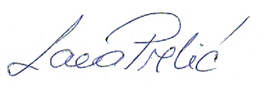 Lana Prelić